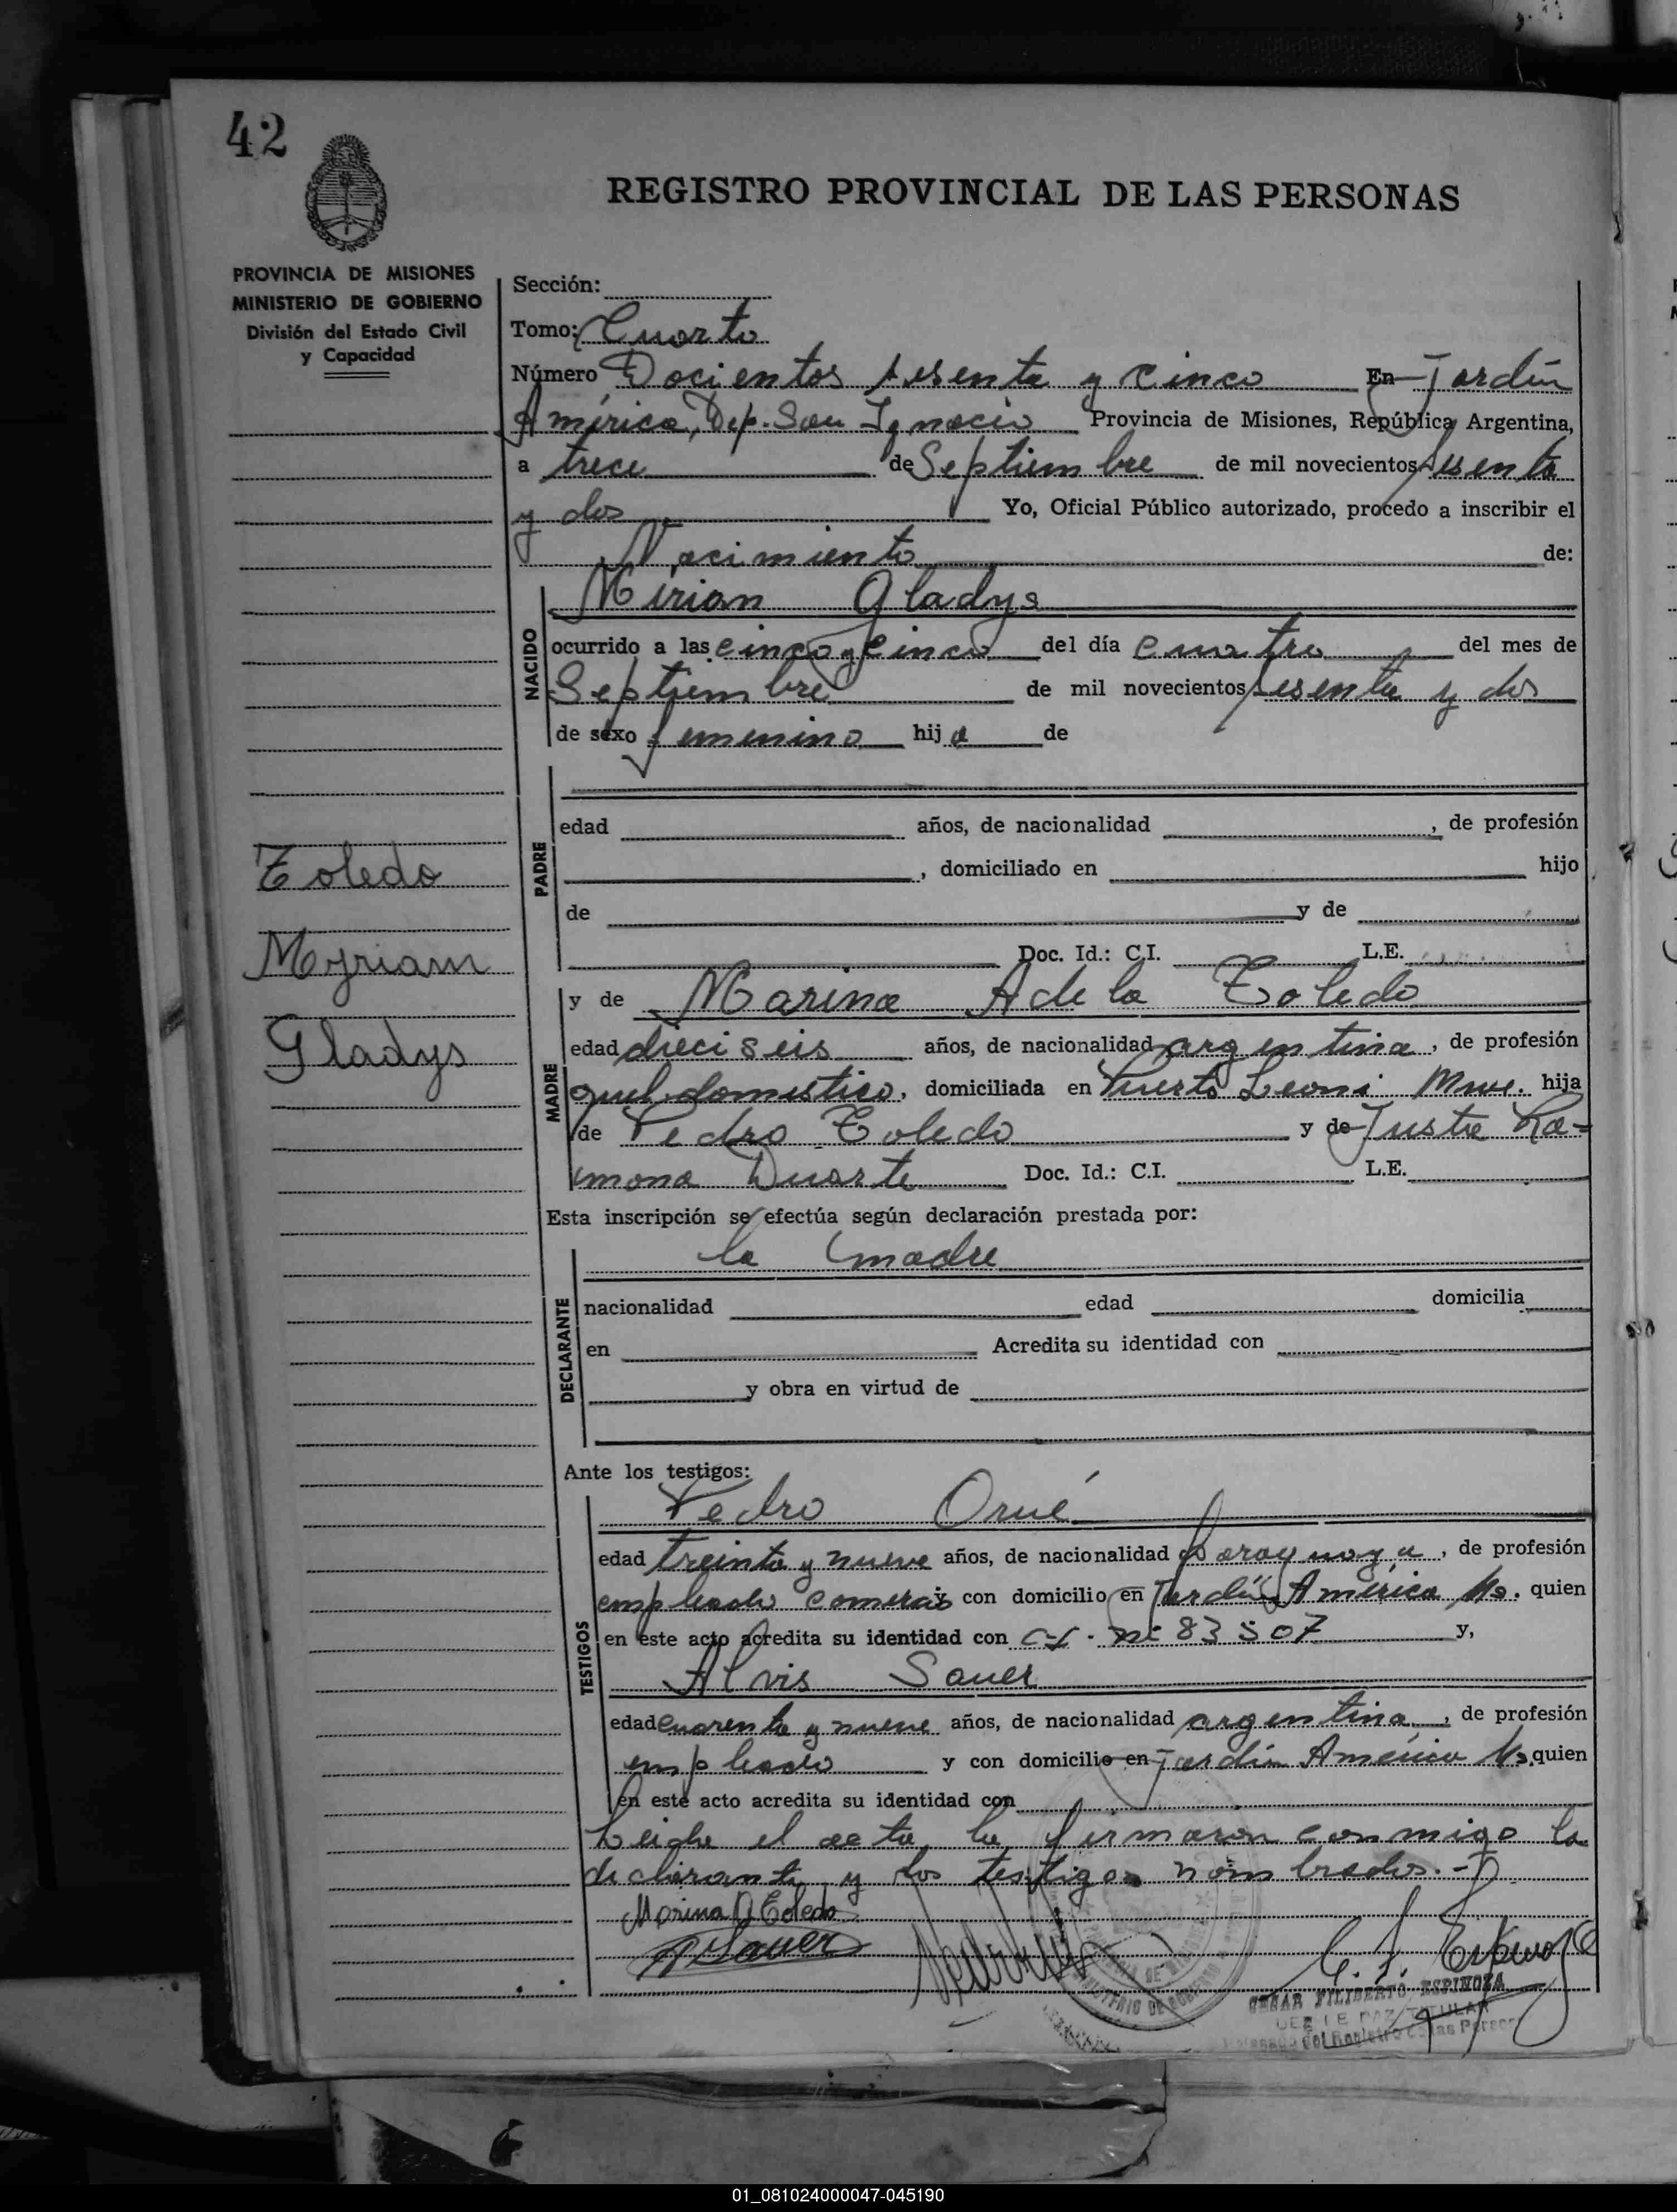 42
REGISTRO PROVINCIAL DE LAS PERSONAS
PROVINCIA DE MISIONES
MINISTERIO DE GOBIERNO
División del Estado Civil
y Capacidad
Sección:
Tomo: Cuarto
Número Docientos sesenta y cinco En Jardín
América, Dep. San Ignacio Provincia de Misiones, República Argentina,
a trece de Septiembre de mil novecientos sesenta
y dos Yo, Oficial Público autorizado, procedo a inscribir el
Nacimiento de:
NACIDO
Mirian Gladys
ocurrido a las cinco y cinco del día cuatro del mes de
Septiembre de mil novecientos sesenta y dos
de sexo femenino hija de
PADRE
edad años, de nacionalidad , de profesión
, domiciliado en hijo
de y de
Doc. Id.: C.I. L.E.
Toledo
Myriam
Gladys
MADRE
y de Marina Adela Toledo
edad dieciseis años, de nacionalidad argentina, de profesión
quel. domestico, domiciliada en Puerto Leoni Mnes. hija
de Pedro Toledo y de Justa Ra-
mona Duarte Doc. Id.: C.I. L.E.
Esta inscripción se efectúa según declaración prestada por:
DECLARANTE
la madre
nacionalidad edad domicilia
en Acredita su identidad con
y obra en virtud de
Ante los testigos:
TESTIGOS
Pedro Orué
edad treinta y nueve años, de nacionalidad paraguaya, de profesión
empleado comercio y con domicilio en Jardín América Ms. quien
en este acto acredita su identidad con C.I. Nº 83507 y,
Alvis Sauer
edad cuarenta y nueve años, de nacionalidad argentina, de profesión
empleado y con domicilio en Jardín América Ms. quien
en este acto acredita su identidad con
Leida el acta, la firmaron conmigo la
declarante y los testigos nombrados.-
Marina A Toledo
A Sauer
C. F. Espinoza
CESAR FILIBERTO ESPINOZA
JUEZ DE PAZ TITULAR
del Registro de las Personas
MINISTERIO DE GOBIERNO
01_081024000047-045190